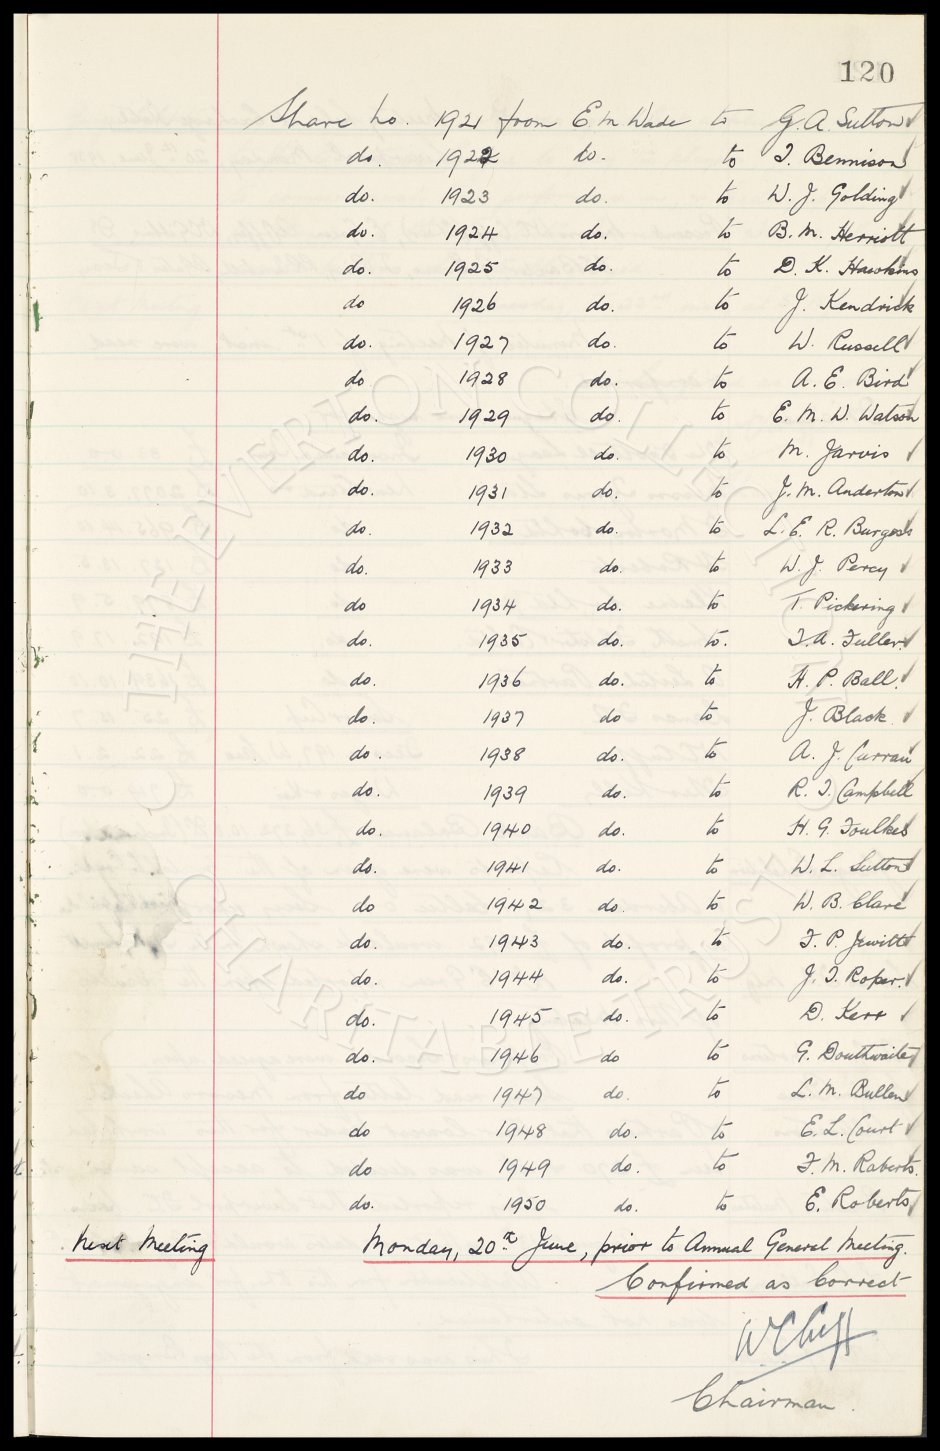 120
Share No. 1921 from E M Wade to G. A. Sutton
do. 1922 do. to T. Bennison
do. 1923 do. to W. J. Golding
do. 1924 do. to B. M. Herriott
do. 1925 do. to D. K. Hawkins
do 1926 do. to J. Kendrick
do. 1927 do. to W. Russell
do 1928 do. to A. E. Bird
do. 1929 do. to E. M. W. Watson
do. 1930 do. to M. Jarvis
do. 1931 do. to J. M. Anderton
do. 1932 do. to L. E. R. Burgess
do. 1933 do. to W. J. Percy
do 1934 do. to T. Pickering
do. 1935 do. to. T. A. Fuller.
do. 1936 do. to H. P. Ball.
do. 1937 do to J. Black.
do. 1938 do. to A. J. Curran
do. 1939 do. to R. T. Campbell
do. 1940 do. to H. G. Foulkes
do. 1941 do. to W. L. Sutton
do 1942 do. to W. B. Clare
do. 1943 do. to F. P. Jewitt
do. 1944 do. to J. T. Roper.
do. 1945 do. to D. Kerr
do. 1946 do to G. Douthwaite
do 1947 do. to L. M. Bullen
do 1948 do. to E. L. Court
do 1949 do. to F. M. Roberts.
do. 1950 do. to E. Roberts
Next Meeting Monday, 20th June, prior to Annual General Meeting.
Confirmed as Correct
W C Cuff
Chairman.
THE EVERTON COLLECTION
CHARITABLE TRUST